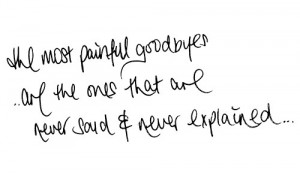 the most painful goodbyes
..are the ones that are
never said & never explained...